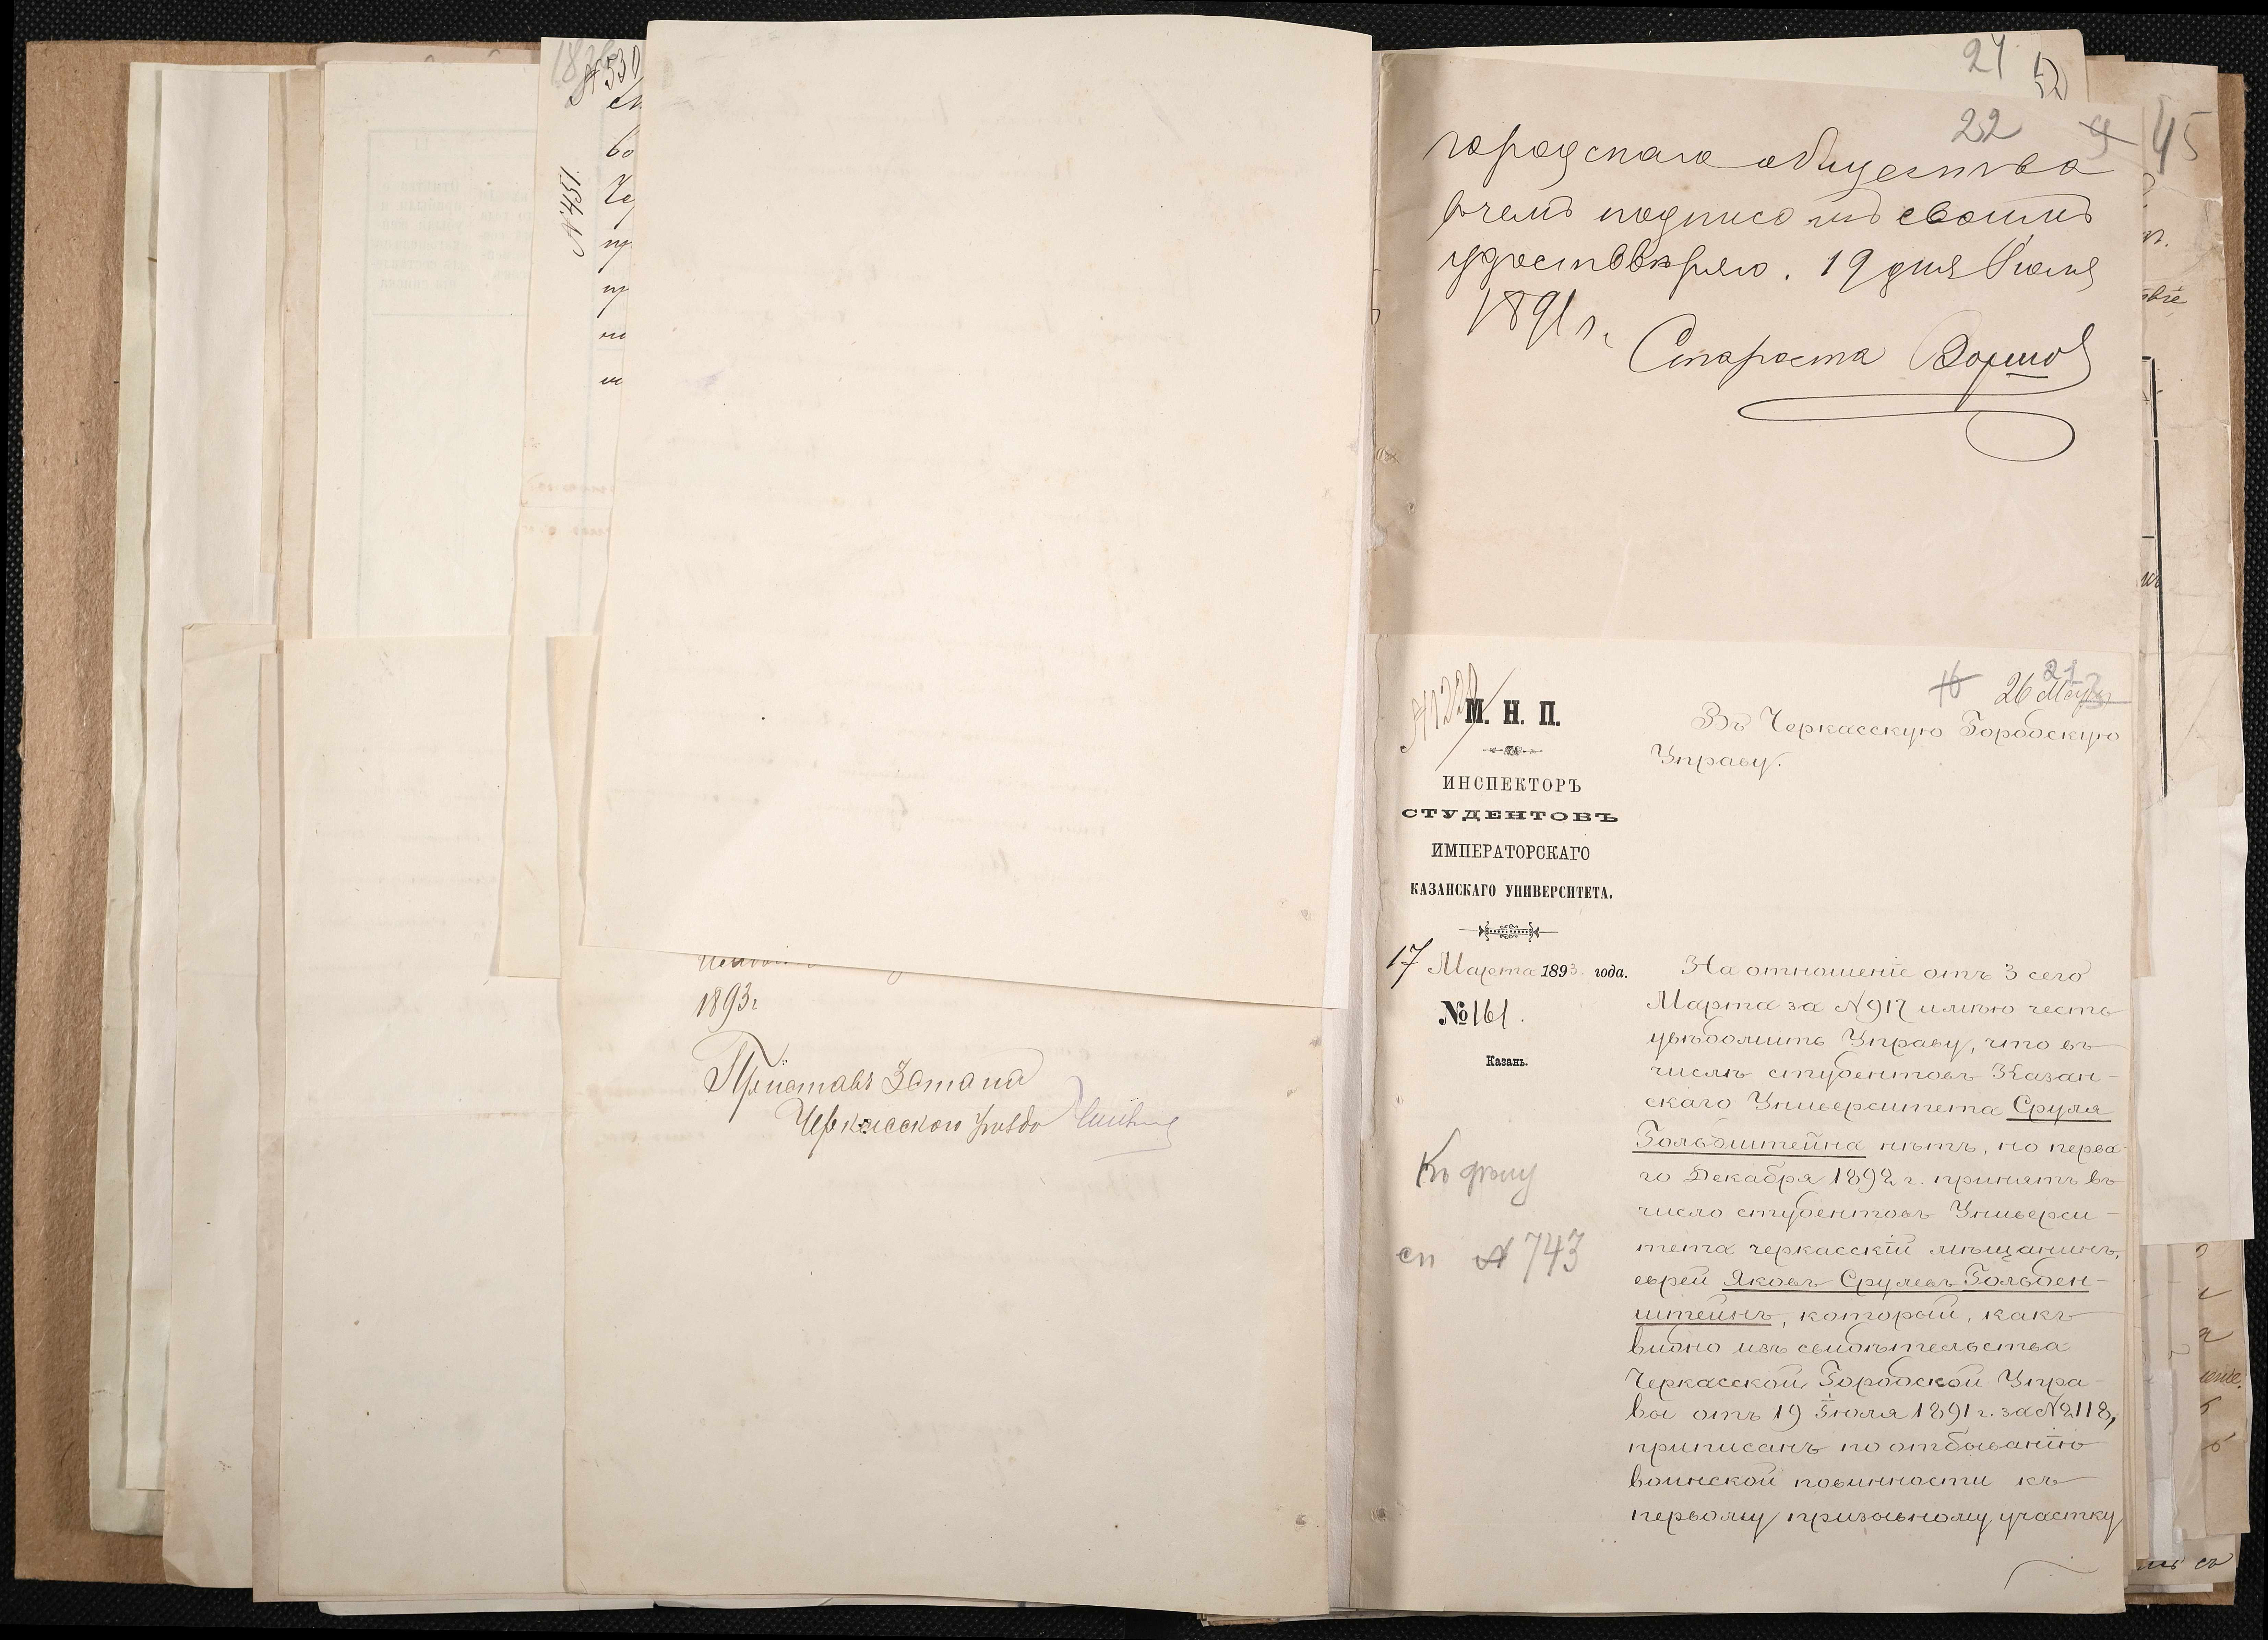 1893г
Приставъ 3 стана
Черкасского уѣзда
№ 451.
24
22
45
городскаго общества
въ чемъ подписомъ своимъ
удостовѣряю. 19 дня Іюля
1891 г.
Староста
21
16
26 Мар
М. Н. П.
ИНСПЕКТОРЪ
СТУДЕНТОВЪ
ИМПЕРАТОРСКАГО
КАЗАНСКАГО УНИВЕРСИТЕТА.
17 Марта 1893 года.
№ 161.
Казань.
Къ дѣлу
сп № 743
Въ Черкасскую Городскую
Управу.
На отношеніе отъ 3 сего
Марта за № 917 имѣю честь
увѣдомить Управу, что въ
числѣ студентовъ Казан-
скаго Университета Сруля
Гольдштейна нѣтъ, но перва-
го Декабря 1892 г. принятъ въ
число студентовъ Универси-
тета черкасскій мѣщанинъ,
еврей Яковъ Срулевъ Гольден-
штейнъ, который, какъ
видно изъ свидѣтельства
Черкасской Городской Упра-
вы отъ 19 Іюля 1891 г. за № 2118,
приписанъ по отбыванію
воинской повинности къ
первому призывному участку